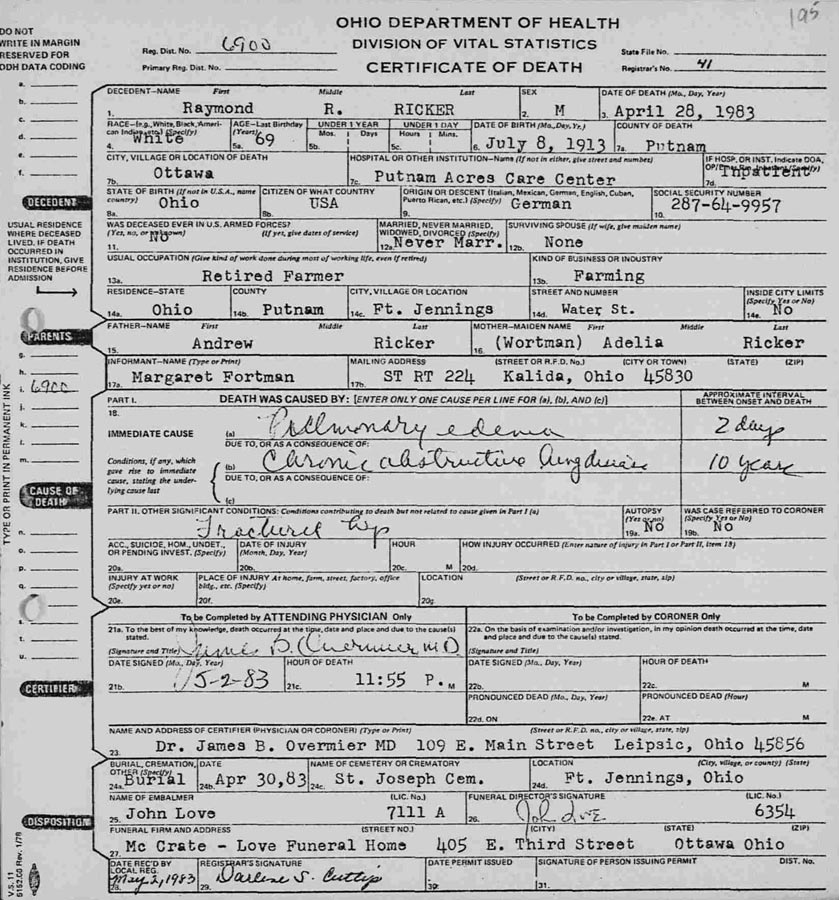 195
OHIO DEPARTMENT OF HEALTH
DIVISION OF VITAL STATISTICS
CERTIFICATE OF DEATH
DO NOT WRITE IN MARGIN RESERVED FOR ODH DATA CODING
Reg. Dist. No. 6900
Primary Reg. Dist. No.
State File No.
Registrar's No. 41
DECEDENT—NAME First Middle Last SEX DATE OF DEATH (Mo., Day, Year)
1. Raymond R. RICKER 2. M 3. April 28, 1983
RACE—(e.g., White, Black, American Indian, etc.) (Specify) AGE—Last Birthday (Years) UNDER 1 YEAR UNDER 1 DAY DATE OF BIRTH (Mo., Day, Yr.) COUNTY OF DEATH
Mos. Days Hours Mins.
4. White 5a. 69 5b. 5c. 6. July 8, 1913 7a. Putnam
CITY, VILLAGE OR LOCATION OF DEATH HOSPITAL OR OTHER INSTITUTION—Name (If not in either, give street and number) IF HOSP. OR INST. Indicate DOA,
7b. Ottawa 7c. Putnam Acres Care Center 7d. Inpatient
DECEDENT
STATE OF BIRTH (If not in U.S.A., name country) CITIZEN OF WHAT COUNTRY ORIGIN OR DESCENT (Italian, Mexican, German, English, Cuban, Puerto Rican, etc.) (Specify) SOCIAL SECURITY NUMBER
8a. Ohio 8b. USA 9. German 10. 287-64-9957
USUAL RESIDENCE WHERE DECEASED LIVED. IF DEATH OCCURRED IN INSTITUTION, GIVE RESIDENCE BEFORE ADMISSION
WAS DECEASED EVER IN U.S. ARMED FORCES? (Yes, no, or unknown) (If yes, give dates of service) MARRIED, NEVER MARRIED, WIDOWED, DIVORCED (Specify) SURVIVING SPOUSE (If wife, give maiden name)
11. No 12a. Never Marr. 12b. None
USUAL OCCUPATION (Give kind of work done during most of working life, even if retired) KIND OF BUSINESS OR INDUSTRY
13a. Retired Farmer 13b. Farming
RESIDENCE—STATE COUNTY CITY, VILLAGE OR LOCATION STREET AND NUMBER INSIDE CITY LIMITS (Specify Yes or No)
14a. Ohio 14b. Putnam 14c. Ft. Jennings 14d. Water St. 14e. No
PARENTS
FATHER—NAME First Middle Last MOTHER—MAIDEN NAME First Middle Last
15. Andrew Ricker 16. (Wortman) Adelia Ricker
INFORMANT—NAME (Type or Print) MAILING ADDRESS (STREET OR R.F.D. No.) (CITY OR TOWN) (STATE) (ZIP)
17a. Margaret Fortman 17b. ST RT 224 Kalida, Ohio 45830
i. 6900
PART I. DEATH WAS CAUSED BY: [ENTER ONLY ONE CAUSE PER LINE FOR (a), (b), AND (c)] APPROXIMATE INTERVAL BETWEEN ONSET AND DEATH
18.
IMMEDIATE CAUSE (a) Pulmonary edema 2 days
DUE TO, OR AS A CONSEQUENCE OF:
Conditions, if any, which gave rise to immediate cause, stating the underlying cause last
(b) Chronic obstructive lung disease 10 years
DUE TO, OR AS A CONSEQUENCE OF:
(c)
CAUSE OF DEATH
TYPE OR PRINT IN PERMANENT INK
PART II. OTHER SIGNIFICANT CONDITIONS: Conditions contributing to death but not related to cause given in Part I (a) AUTOPSY (Yes or no) WAS CASE REFERRED TO CORONER (Specify Yes or No)
Fractured hip 19a. No 19b. No
ACC., SUICIDE, HOM., UNDET., OR PENDING INVEST. (Specify) DATE OF INJURY (Month, Day, Year) HOUR HOW INJURY OCCURRED (Enter nature of injury in Part I or Part II, item 18)
20a. 20b. 20c. M 20d.
INJURY AT WORK (Specify yes or no) PLACE OF INJURY At home, farm, street, factory, office bldg., etc. (Specify) LOCATION (Street or R.F.D. no., city or village, state, zip)
20e. 20f. 20g.
To be Completed by ATTENDING PHYSICIAN Only To be Completed by CORONER Only
21a. To the best of my knowledge, death occurred at the time, date and place and due to the cause(s) stated. 22a. On the basis of examination and/or investigation, in my opinion death occurred at the time, date and place and due to the cause(s) stated.
(Signature and Title) James B. Overmier MD (Signature and Title)
DATE SIGNED (Mo., Day, Year) HOUR OF DEATH DATE SIGNED (Mo., Day, Year) HOUR OF DEATH
21b. 5-2-83 21c. 11:55 P. M 22b. 22c. M
CERTIFIER
PRONOUNCED DEAD (Mo., Day, Year) PRONOUNCED DEAD (Hour)
22d. ON 22e. AT M
NAME AND ADDRESS OF CERTIFIER (PHYSICIAN OR CORONER) (Type or Print) (Street or R.F.D. no., city or village, state, zip)
23. Dr. James B. Overmier MD 109 E. Main Street Leipsic, Ohio 45856
BURIAL, CREMATION, OTHER (Specify) DATE NAME OF CEMETERY OR CREMATORY LOCATION (City, village, or county) (State)
24a. Burial 24b. Apr 30,83 24c. St. Joseph Cem. 24d. Ft. Jennings, Ohio
NAME OF EMBALMER (LIC. No.) FUNERAL DIRECTOR'S SIGNATURE (LIC. No.)
25. John Love 7111 A 26. John Love 6354
DISPOSITION
FUNERAL FIRM AND ADDRESS (STREET NO.) (CITY) (STATE) (ZIP)
27. Mc Crate - Love Funeral Home 405 E. Third Street Ottawa Ohio
DATE REC'D BY LOCAL REG. REGISTRAR'S SIGNATURE DATE PERMIT ISSUED SIGNATURE OF PERSON ISSUING PERMIT DIST. No.
28. May 2, 1983 29. Darlene S. Cuttip 30. 31.
V.S. 11
5152.05 Rev. 1/78